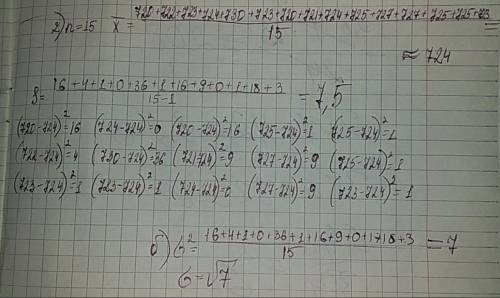 2) n=15 x̄ = 720+722+723+724+730+723+720+721+724+725+727+727+725+725+723 / 15 =
≈ 724
S = 16+4+1+0+36+1+16+9+0+1+18+3 / 15-1 = 7,5
(720-724)²=16 (724-724)²=0 (720-724)²=16 (725-724)²=1 (725-724)²=1
(722-724)²=4 (730-724)²=36 (721-724)²=9 (727-724)²=9 (725-724)²=1
(723-724)²=1 (723-724)²=1 (724-724)²=0 (727-724)²=9 (723-724)²=1
б) σ² = 16+4+1+0+36+1+16+9+0+1+18+3 / 15 = 7
σ = √7